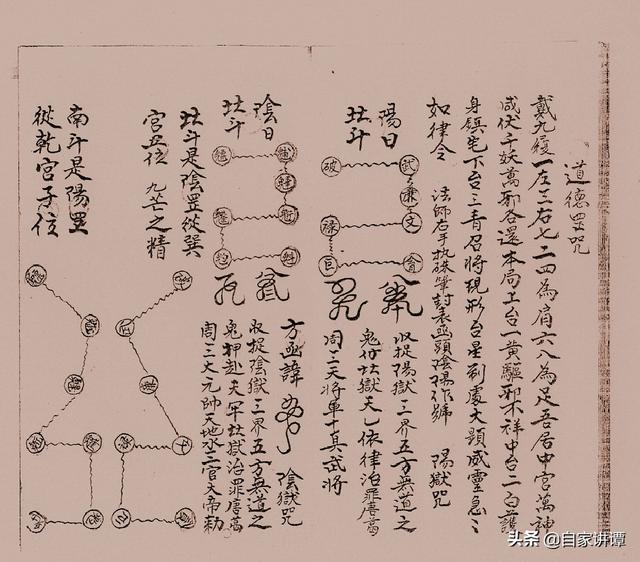 道德罡咒
戴九履一左三右七二四為肩六八為足吾居中宮萬神
咸伏千妖萬邪各還本局上台一黃驅邪不祥中台二白護
身鎮宅下台三青召將現形台星到處大顯威靈急々
如律令 法師右手执硃筆封表函頭陰陽作號 陽獄咒
陽日
北斗
武
破
廉
文
祿
貪
巨
收捉陽獄三界五方無道之
鬼付北獄天乙依律治罪唐葛
周三天將軍十真武將
陰日
北斗
方函諱 陰獄咒
收捉陰獄三界五方無道之
鬼押赴天牢北獄治罪唐葛
周三大元帥天地水三官大帝勅
北斗是陰罡從巽
宮五位 九芒之精
南斗是陽罡
從乾宮子位
头条 @自家讲谭